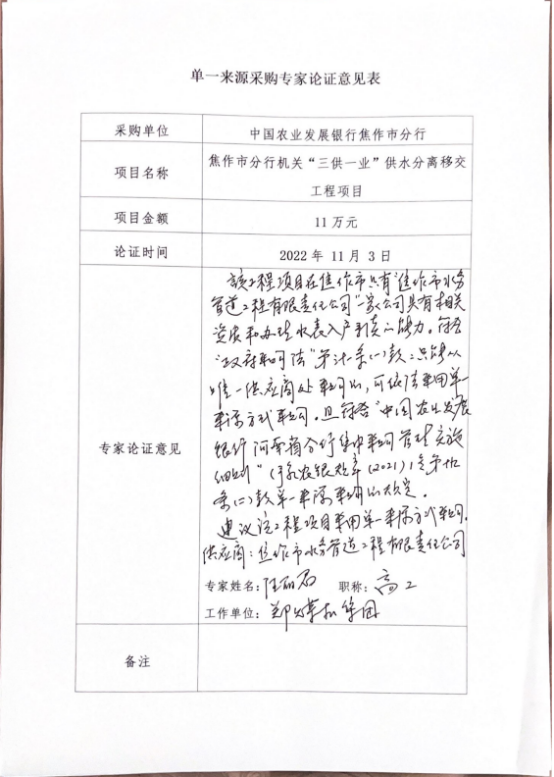 单一来源采购专家论证意见表
采购单位
中国农业发展银行焦作市分行
项目名称
焦作市分行机关“三供一业”供水分离移交
工程项目
项目金额
11万元
论证时间
2022 年 11 月 3 日
专家论证意见
该工程项目在焦作市只有“焦作市水务
管道工程有限责任公司”一家公司具有相关
资质和办理水表入户的能力。符合
“政府采购法”第卅一条(一)款:只能从
唯一供应商处采购的,可依法采用单一
来源方式采购。且符合“中国农业发展
银行河南省分行集中采购管理实施
细则”(豫农发银规章(2021)1号第
条(二)款单一来源采购的规定。
建议该工程项目采用单一来源方式采购。
供应商:焦作市水务管道工程有限责任公司
专家姓名:
职称:高工
工作单位:郑 集团
备注